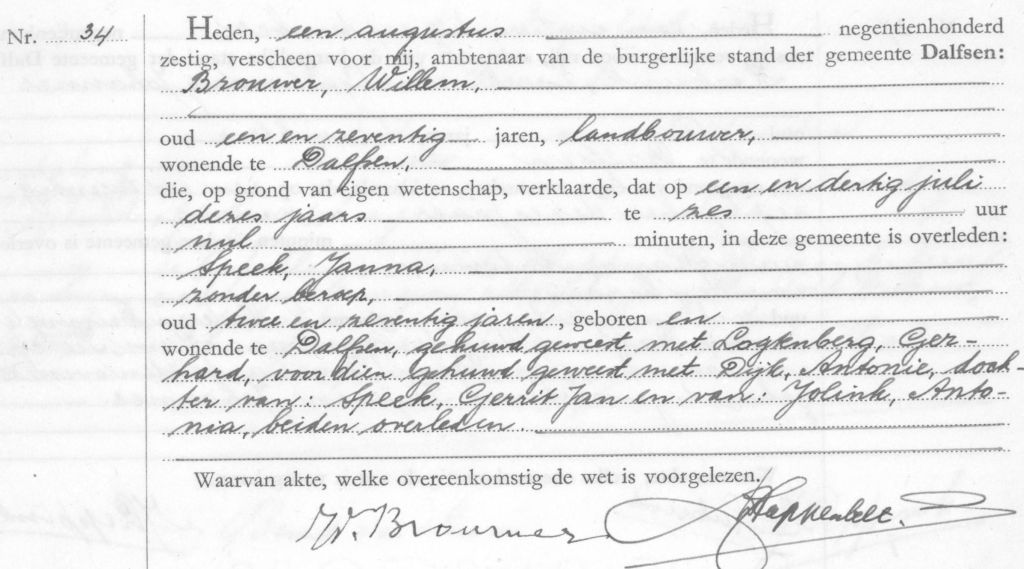 Nr. 34 Heden, een augustus negentienhonderd
zestig, verscheen voor mij, ambtenaar van de burgerlijke stand der gemeente Dalfsen:
Brouwer, Willem,
oud een en zeventig jaren, landbouwer,
wonende te Dalfsen,
die, op grond van eigen wetenschap, verklaarde, dat op een en dertig juli
dezes jaars te zes uur
nul minuten, in deze gemeente is overleden:
Speek, Janna,
zonder beroep,
oud twee en zeventig jaren, geboren en
wonende te Dalfsen, gehuwd geweest met Logtenberg, Ger-
hard, voordien gehuwd geweest met Dijk, Antonie, doch-
ter van: Speek, Gerrit Jan en van: Jolink, Anto-
nia, beiden overleden.
Waarvan akte, welke overeenkomstig de wet is voorgelezen.
W. Brouwer